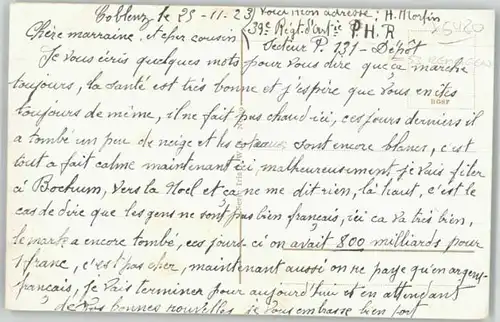 Coblenz le 25-11-23
Voici mon adresse: H. Morfin
39e Régt. d'Art^ie P.H.R
Secteur P. 131 - Dépôt
Chère marraine, et cher cousin
Je vous écris quelques mots pour vous dire que ça marche
toujours, la santé est très bonne et j'espire que vous en êtes
toujours de même, il ne fait pas chaud ici, ces jours derniers il
a tombé un peu de neige et les coteaux sont encore blancs, c'est
tout a fait calme maintenant ici, malheureusement je vais filer
à Bochum, vers la Noel et ça ne me dit rien, là haut, c'est le
cas de dire que les gens ne sont pas bien français, ici ca va très bien,
le mark a encore tombé, ces jours-ci on avait 800 milliards pour
1 franc, c'est pas cher, maintenant aussi on ne paye qu'en argent
français, je vais terminer pour aujourd'hui et en attendant
de vos bonnes nouvelles je vous embrasse bien fort